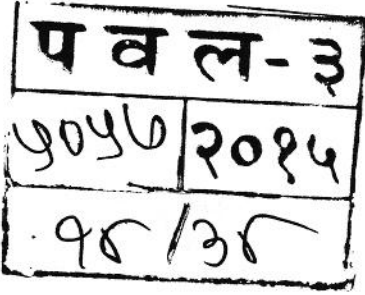 प व ल - ३
५०५७ २०१५
१४/३४